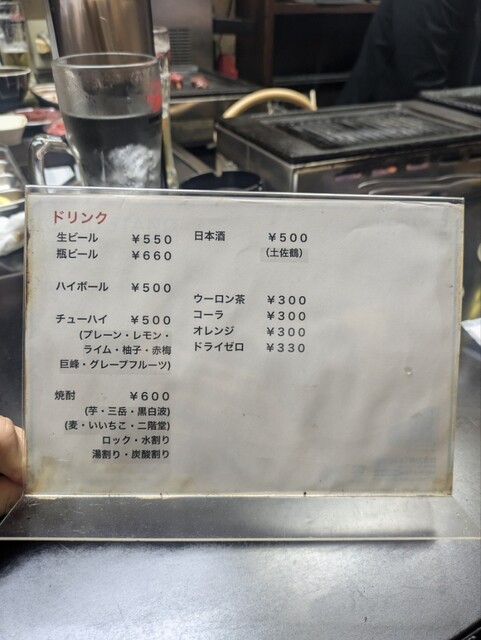 ドリンク
生ビール ￥550
瓶ビール ￥660
ハイボール ￥500
チューハイ ￥500
(プレーン・レモン・
ライム・柚子・赤梅
巨峰・グレープフルーツ)
焼酎 ￥600
(芋・三岳・黒白波)
(麦・いいちこ・二階堂)
ロック・水割り
湯割り・炭酸割り
日本酒 ￥500
(土佐鶴)
ウーロン茶 ￥300
コーラ ￥300
オレンジ ￥300
ドライゼロ ￥330